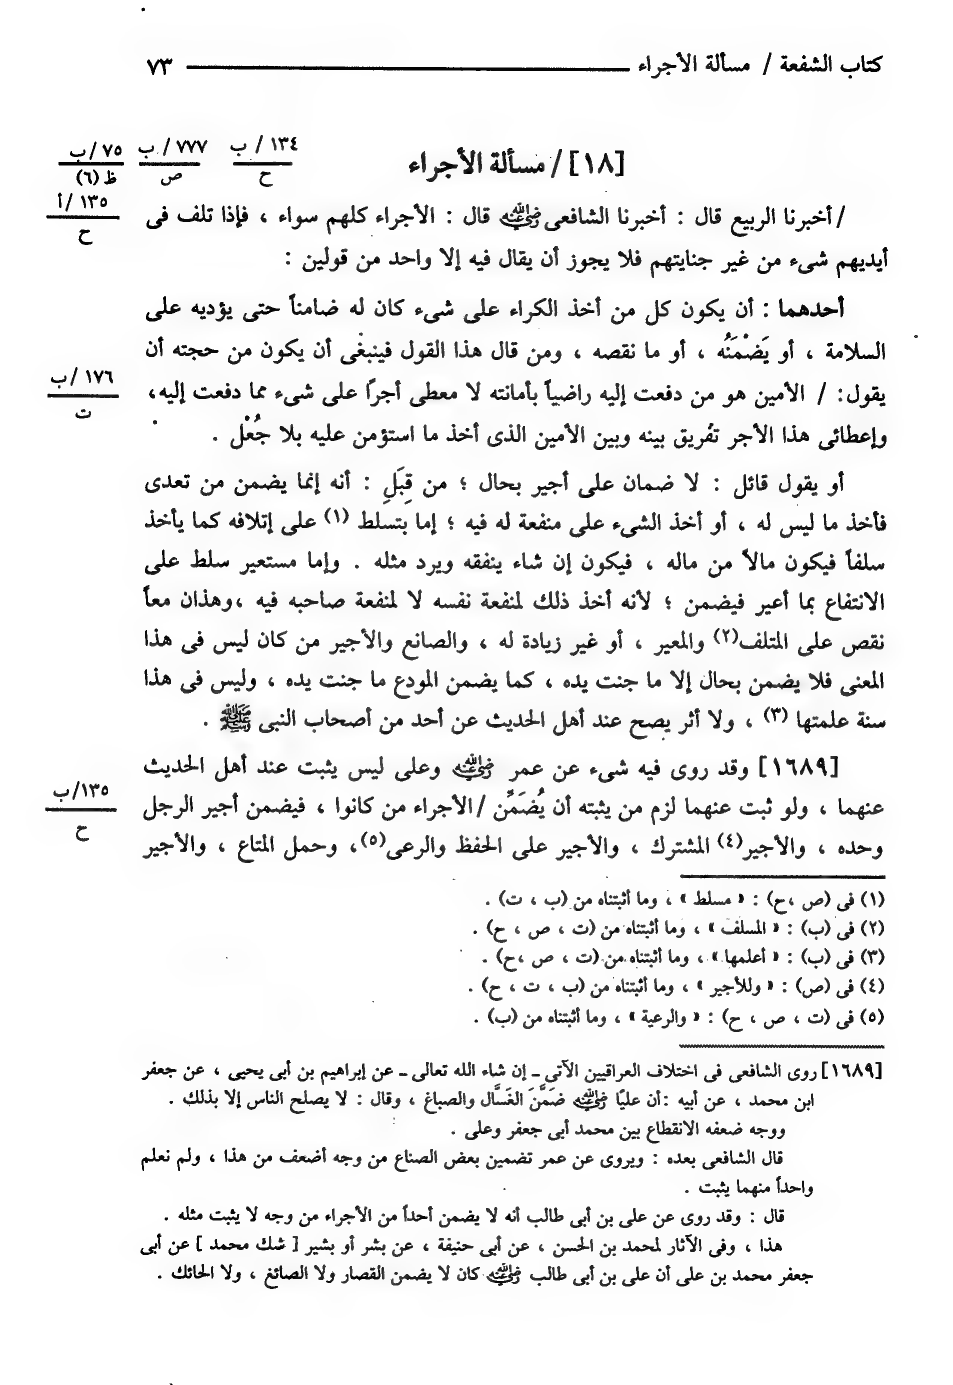 كتاب الشفعة / مسألة الأجراء ٧٣
١٣٤ / ب ٧٧٧ / ب ٧٥ /ب
ح ص ظ (٦)
[١٨] / مسألة الأجراء
١٣٥ /أ
ح
/ أخبرنا الربيع قال : أخبرنا الشافعى رضي الله عنه قال : الأجراء كلهم سواء ، فإذا تلف فى
أيديهم شىء من غير جنايتهم فلا يجوز أن يقال فيه إلا واحد من قولين :
أحدهما : أن يكون كل من أخذ الكراء على شىء كان له ضامناً حتى يؤديه على
السلامة ، أو يَضْمَنُه ، أو ما نقصه ، ومن قال هذا القول فينبغى أن يكون من حجته أن
١٧٦ /ب
ت
يقول: / الأمين هو من دفعت إليه راضياً بأمانته لا معطى أجرًا على شىء مما دفعت إليه،
وإعطائى هذا الأجر تفُريق بينه وبين الأمين الذى أخذ ما استؤمن عليه بلا جُعْل .
أو يقول قائل : لا ضمان على أجير بحال ؛ من قِبَلِ : أنه إنما يضمن من تعدى
فأخذ ما ليس له ، أو أخذ الشىء على منفعة له فيه ؛ إما بتسلط (١) على إتلافه كما يأخذ
سلفاً فيكون مالاً من ماله ، فيكون إن شاء ينفقه ويرد مثله . وإما مستعير سلط على
الانتفاع بما أعير فيضمن ؛ لأنه أخذ ذلك لمنفعة نفسه لا لمنفعة صاحبه فيه ،وهذان معاً
نقص على المتلف(٢) والمعير ، أو غير زيادة له ، والصانع والأجير من كان ليس فى هذا
المعنى فلا يضمن بحال إلا ما جنت يده ، كما يضمن المودع ما جنت يده ، وليس فى هذا
سنة علمتها (٣) ، ولا أثر يصح عند أهل الحديث عن أحد من أصحاب النبى ﷺ .
[١٦٨٩] وقد روى فيه شىء عن عمر رضي الله عنه وعلى ليس يثبت عند أهل الحديث
١٣٥/ب
ح
عنهما ، ولو ثبت عنهما لزم من يثبته أن يُضَمِّن /الأجراء من كانوا ، فيضمن أجير الرجل
وحده ، والأجير(٤) المشترك ، والأجير على الحفظ والرعى(٥)، وحمل المتاع ، والأجير
(١) فى (ص ،ح) : « مسلط » ، وما أثبتناه من (ب ، ت) .
(٢) فى (ب) : « المسلف » ، وما أثبتناه من (ت ، ص ، ح) .
(٣) فى (ب) : « أعلمها » ، وما أثبتناه من (ت ، ص ،ح) .
(٤) فى (ص) : « وللأجير » ، وما أثبتناه من (ب ، ت ، ح) .
(٥) فى (ت ، ص ، ح) : « والرعية » ، وما أثبتناه من (ب) .
[١٦٨٩] روى الشافعى فى اختلاف العراقيين الآتى ـ إن شاء الله تعالى ـ عن إبراهيم بن أبى يحيى ، عن جعفر
ابن محمد ، عن أبيه :أن عليًا رضي الله عنه ضَمَّنَ الغَسَّال والصباغ ، وقال : لا يصلح الناس إلا بذلك .
ووجه ضعفه الانقطاع بين محمد أبى جعفر وعلى .
قال الشافعى بعده : ويروى عن عمر تضمين بعض الصناع من وجه أضعف من هذا ، ولم نعلم
واحداً منهما يثبت .
قال : وقد روى عن على بن أبى طالب أنه لا يضمن أحداً من الأجراء من وجه لا يثبت مثله .
هذا ، وفى الآثار لمحمد بن الحسن ، عن أبى حنيفة ، عن بشر أو بشير [ شك محمد ] عن أبى
جعفر محمد بن على أن على بن أبى طالب رضي الله عنه كان لا يضمن القصار ولا الصائغ ، ولا الحائك .